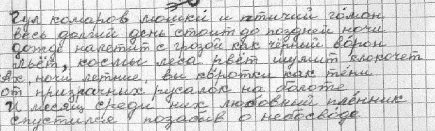 Гул комаров мошки и птичий гомон
весь долгий день стоит до поздней ночи
дождь налетит с грозой как чёрный ворон
льёт, космы леса рвёт шумит клокочет
Ах ночи летние, вы коротки как тени
от призрачных русалок на болоте
И месяц среди них любовный пленник
спустился позабыв о небосводе